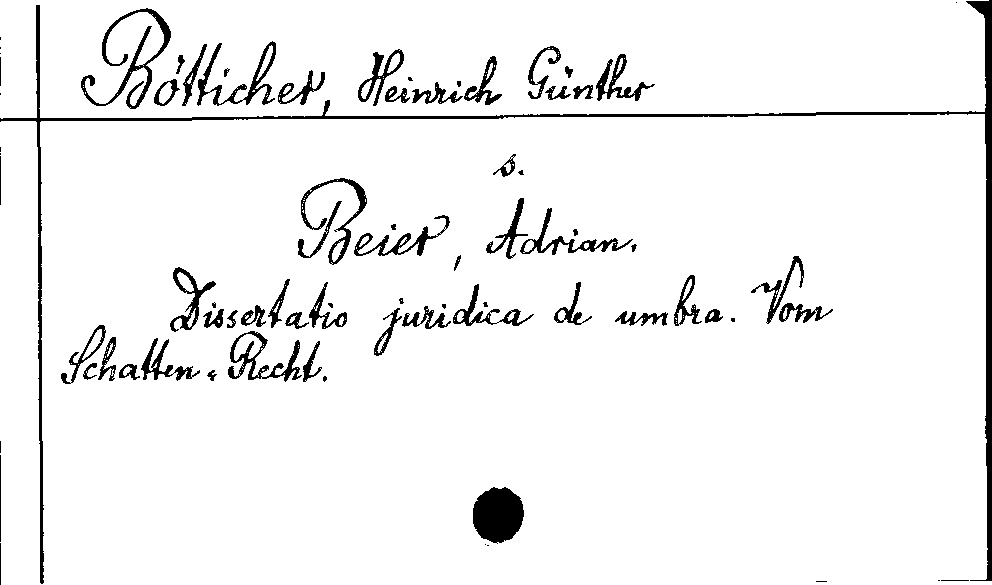 Bötticher, Heinrich Günther
s.
Beier, Adrian.
Dissertatio juridica de umbra. Vom
Schatten-Recht.